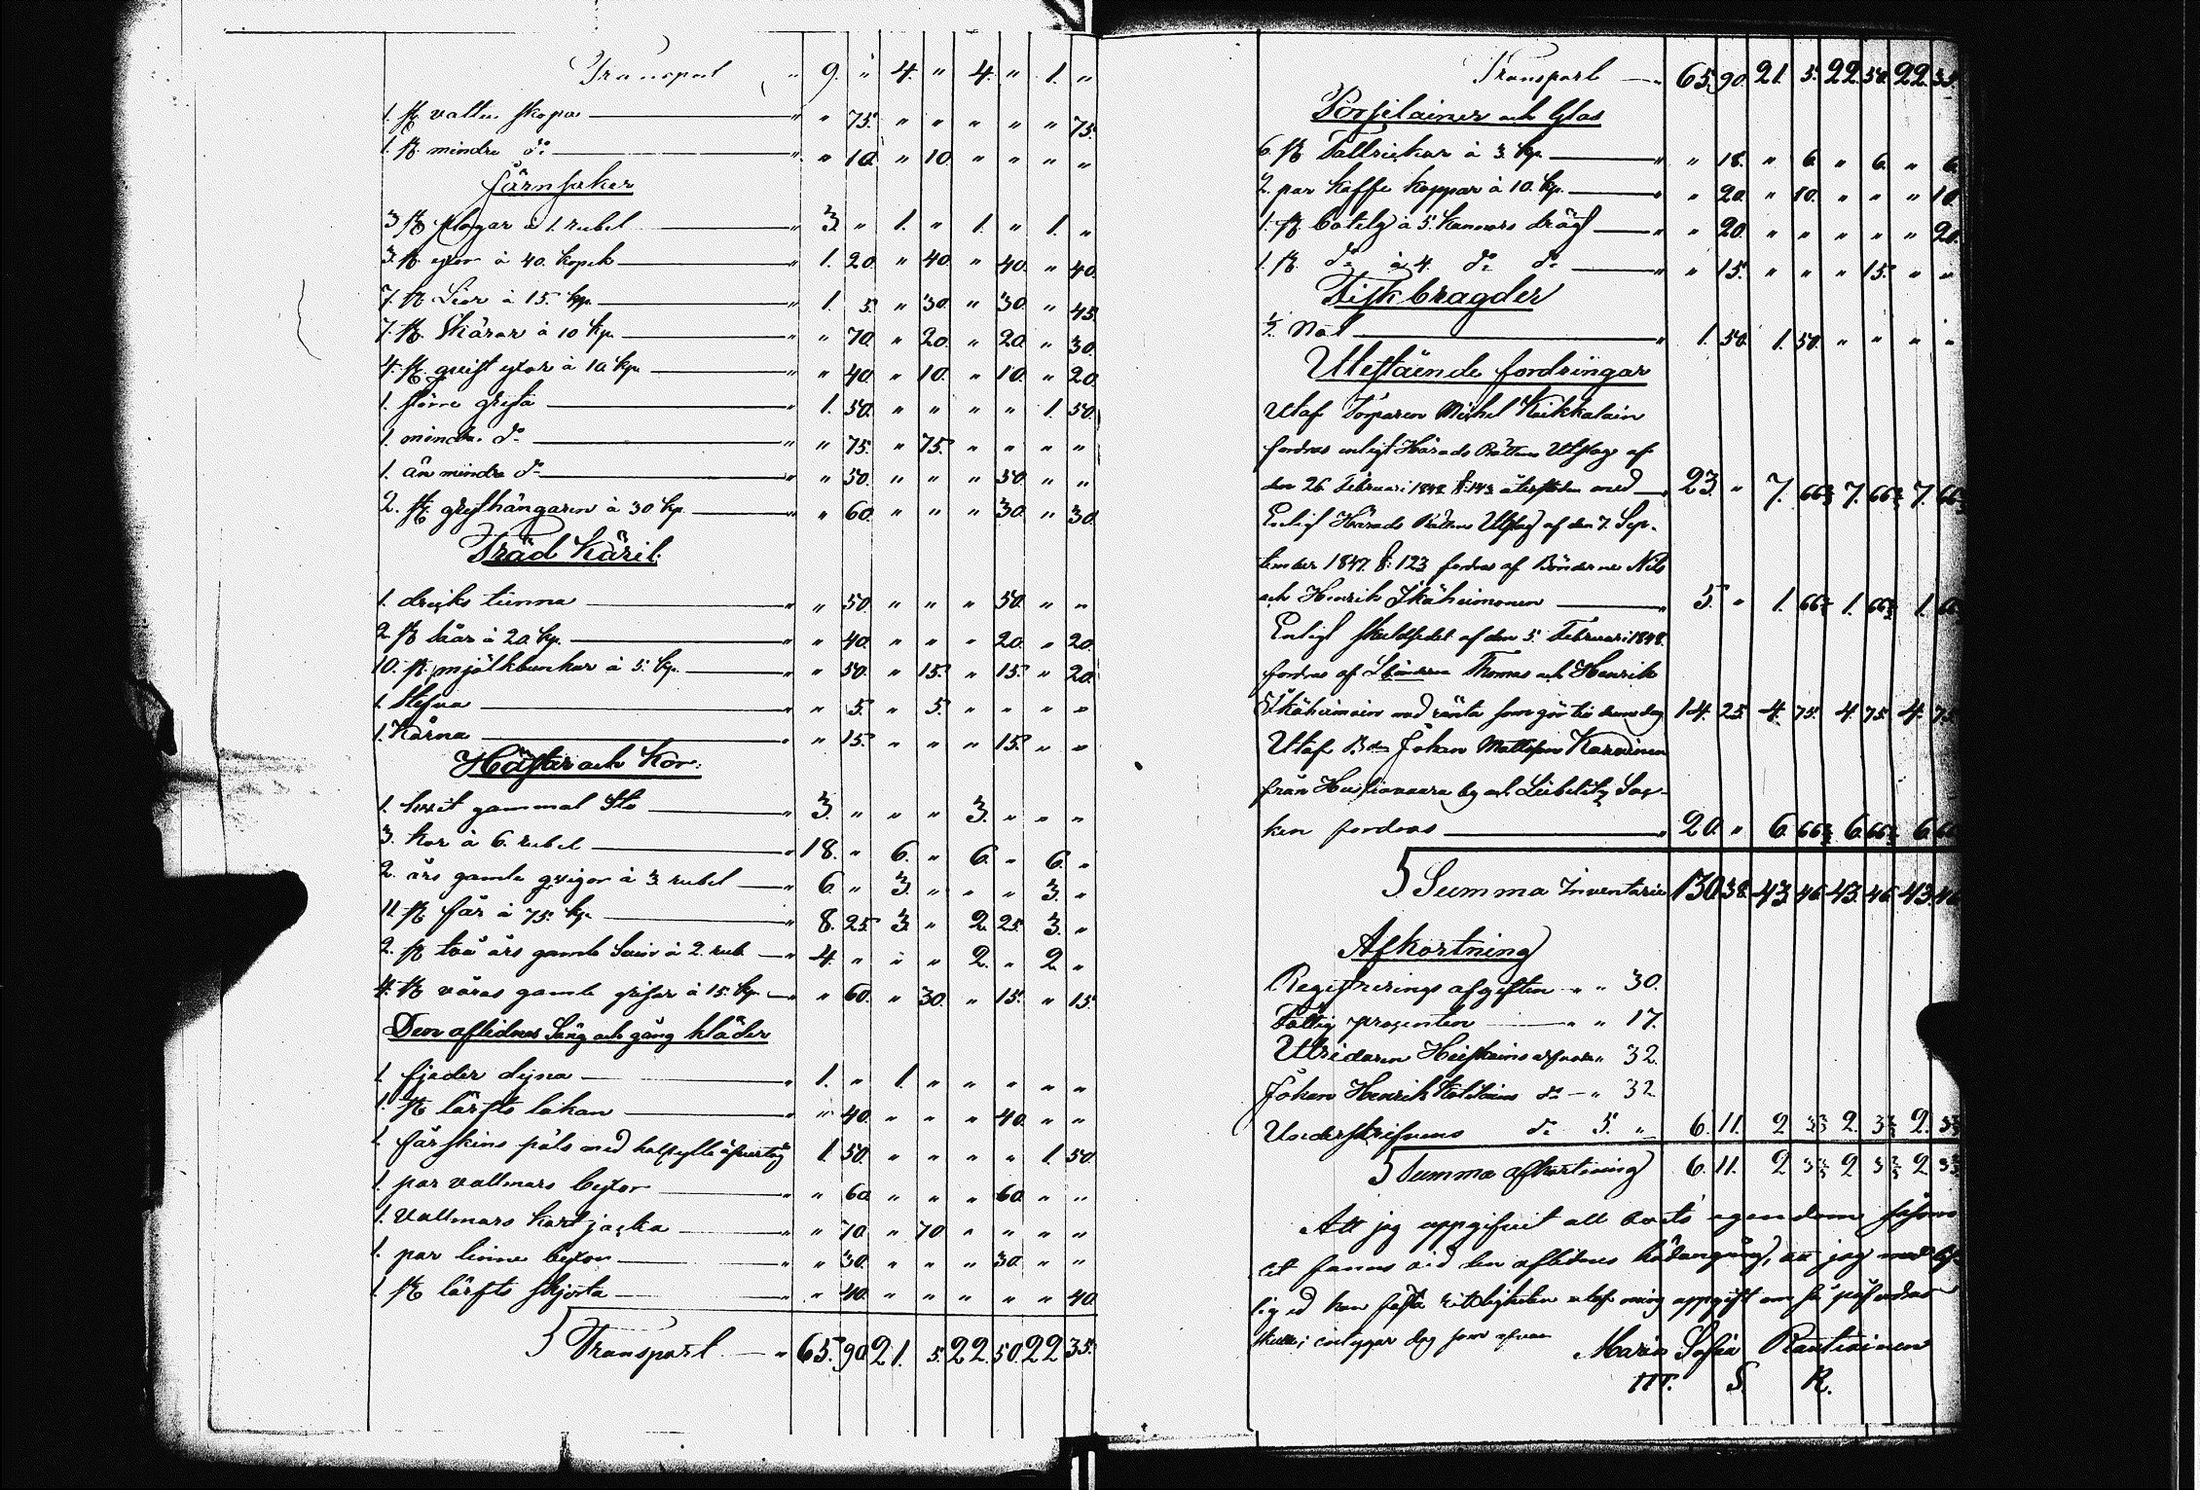 Transport " 9. " 4. " 4. " 1. "
1. st vatten skopa " " 75. " " " " " 75.
1. st mindre do " " 10. " 10. " " " "
Järnsaker
3 st plogar à 1. rubel " 3. " 1. " 1. " 1. "
3. st yxor à 40. kopek " 1. 20. " 40. " 40. " 40.
7. st Liar à 15. kp. " 1. 5. " 30. " 30. " 45.
7. st Skäror à 10 kp. " " 70. " 20. " 20. " 30.
4. st quist yxor à 10 kp. " " 40. " 10. " 10. " 20.
1. större gryta " 1. 50. " " " " 1. 50.
1. mindre do " " 75. " 75. " " " "
1. än mindre do " " 50. " " " 50. " "
2. st grythängaren à 30 kp. " " 60. " " " 30. " 30.
Träd Käril.
1. dricks tunna " " 50. " " " 50. " "
2. st såar à 20 kp. " " 40. " " " 20. " 20.
10. st mjölkbunkar à 5. kp. " " 50. " 15. " 15. " 20.
1. Stefva " " 5. " 5. " " " "
1. Kärna " " 15. " " " 15. " "
Hästar och Kor.
1. hvit gammal Sto " 3. " " " 3. " " "
3. kor à 6. rubel " 18. " 6. " 6. " 6. "
2. års gamla qvigor à 3. rubel " 6. " 3. " " " 3. "
11. st får à 75. kp. " 8. 25. 3. " 2. 25. 3. "
2. st två års gamla Svin à 2. rub " 4. " " " 2. " 2. "
4. st våras gamla grisar à 15. kp. " " 60. " 30. " 15. " 15.
Den aflidnes Säng och gång kläder
1. fjeder dyna " 1. " 1. " " " " "
1. st lärfts lakan " " 40. " " " 40. " "
1. fårskins päls med halfylle öfvertyg 1. 50. " " " " 1. 50.
1. par vallmars byxor " " 60. " " " 60. " "
1. Vallmars kort jacka " " 70. " 70 " " " "
1. par linne byxor " " 30. " " " 30. " "
1. st lärfts skjorta " " 40. " " " " " 40.
Transport " 65. 90. 21. 5. 22. 50. 22. 35.
Transport " 65. 90. 21. 5. 22. 50. 22. 35.
Porslainer och Glas
6. st Tallrickar à 3. kp. " " 18. " 6. " 6. " 6.
2. par kaffe koppar à 10. kp. " " 20. " 10. " " " 10.
1. st botelj à 5. kannors drägt " " 20. " " " " " 20.
1. st do à 4. do do " " 15. " " " 15. " "
Fiskbragder
1/2 Not " 1. 50. 1. 50. " " " "
Utestående fordringar
Utaf Torparen Michel Kukkalain
fordras enligt Härads Rättens Utslag af
den 26 Februari 1848. §. 143. återstoden med 23. " 7. 66 2/3 7. 66 2/3 7. 66
Enligt Härads Rättens Utslag af den 7. Sep-
tember 1847. §. 123 fordras af Bönderne Nils
och Henrik Ikäheimonen " 5. " 1. 66 2/3 1. 66 2/3 1. 66
Enligt skuldsedel af den 5. Februari 1848.
fordras af Bönderne Thomas och Henrik
Ikäheimoin med ränta som gör till denna dag 14. 25. 4. 75. 4. 75. 4. 75.
Utaf Bdn Johan Mattsson Karvinen
från by och Libelitz Soc-
ken fordras " 20. " 6. 66 2/3 6. 66 2/3 6. 66
Summa Inventarii 130. 38. 43. 46. 43. 46. 43. 46
Afkortning
Registrerings afgiften " " 30.
Fattig procenten " " 17.
Utridaren arfvode " 32
Johan Henrik do " 32
Underskrifvens do 5. " 6. 11. 2 3 2/3 2. 3 2/3 2. 3 2/3
Summa afkortning 6. 11. 2 3 2/3 2 3 2/3 2 3 2/3
Att jag uppgifvit all boets egendom såsom
det fanns vid den aflidnes dödsångång, att jag med lif-
lig ed kan fästa riktigheten utaf min uppgift om så påfordras
skulle; intygar dag som ofvan Maria Sofia Rautiainen
M. S. R.